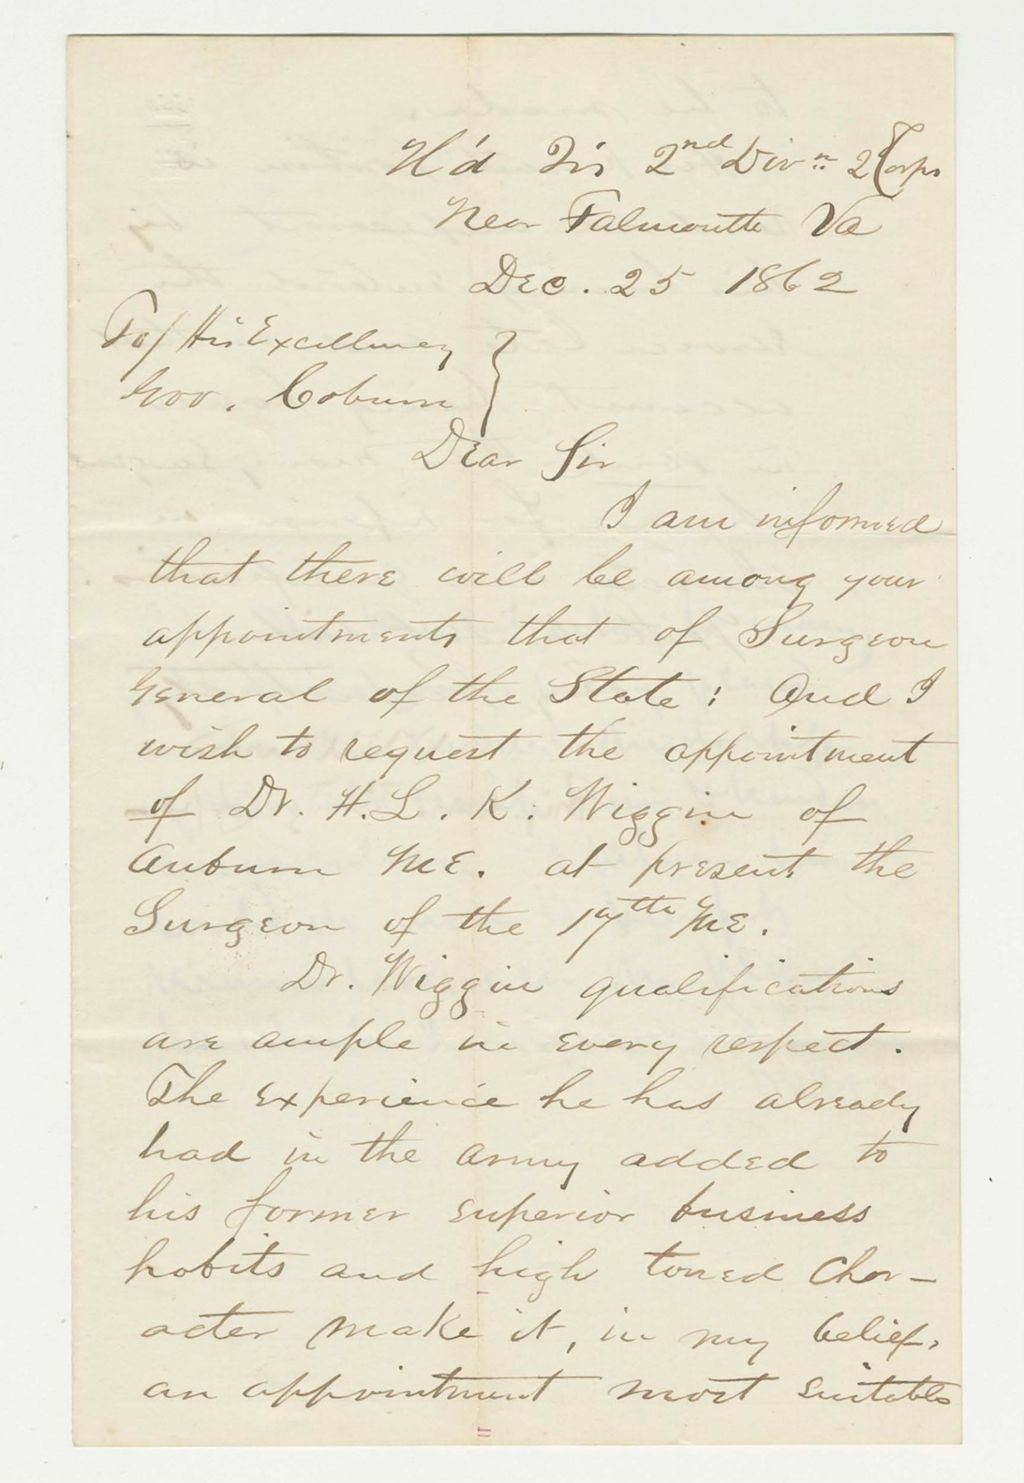 H'd Qrs 2nd Divn 2 Corps
Near Falmouth Va
Dec. 25 1862
To/ His Excellency
Gov. Coburn
Dear Sir
I am informed
that there will be among your
appointments that of Surgeon
General of the State; And I
wish to request the appointment
of Dr. H. L. K. Wiggin of
Auburn ME. at present the
Surgeon of the 17th ME.
Dr. Wiggin qualifications
are ample in every respect.
The experience he has already
had in the army added to
his former superior business
habits and high toned Char-
acter make it, in my belief,
an appointment most suitable